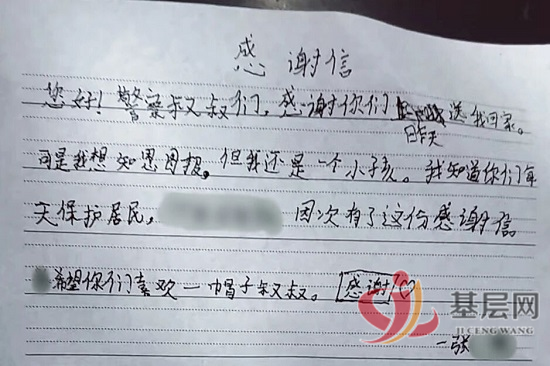 感谢信
您好！警察叔叔们，感谢你们送我回家。
昨天
可是我想知恩图报，但我还是一个小孩。我知道你们每
天保护居民，因次有了这份感谢信
希望你们喜欢一帽子叔叔。感谢♡
一张
基层网
JI CENG WANG